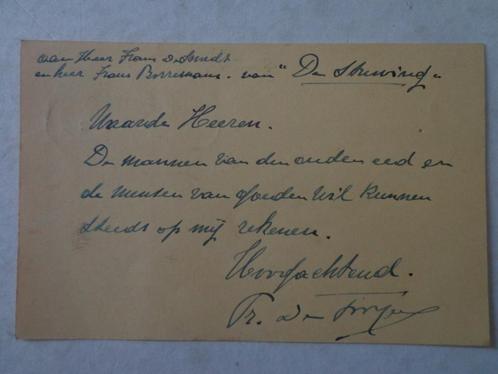 aan Heer Frans De Smedt
en heer Frans Borremans. van "De
Waarde Heeren.
De mannen van den ouden eed en
de menschen van goeden wil kunnen
steeds op mij rekenen.
Hoogachtend.
Fr. De